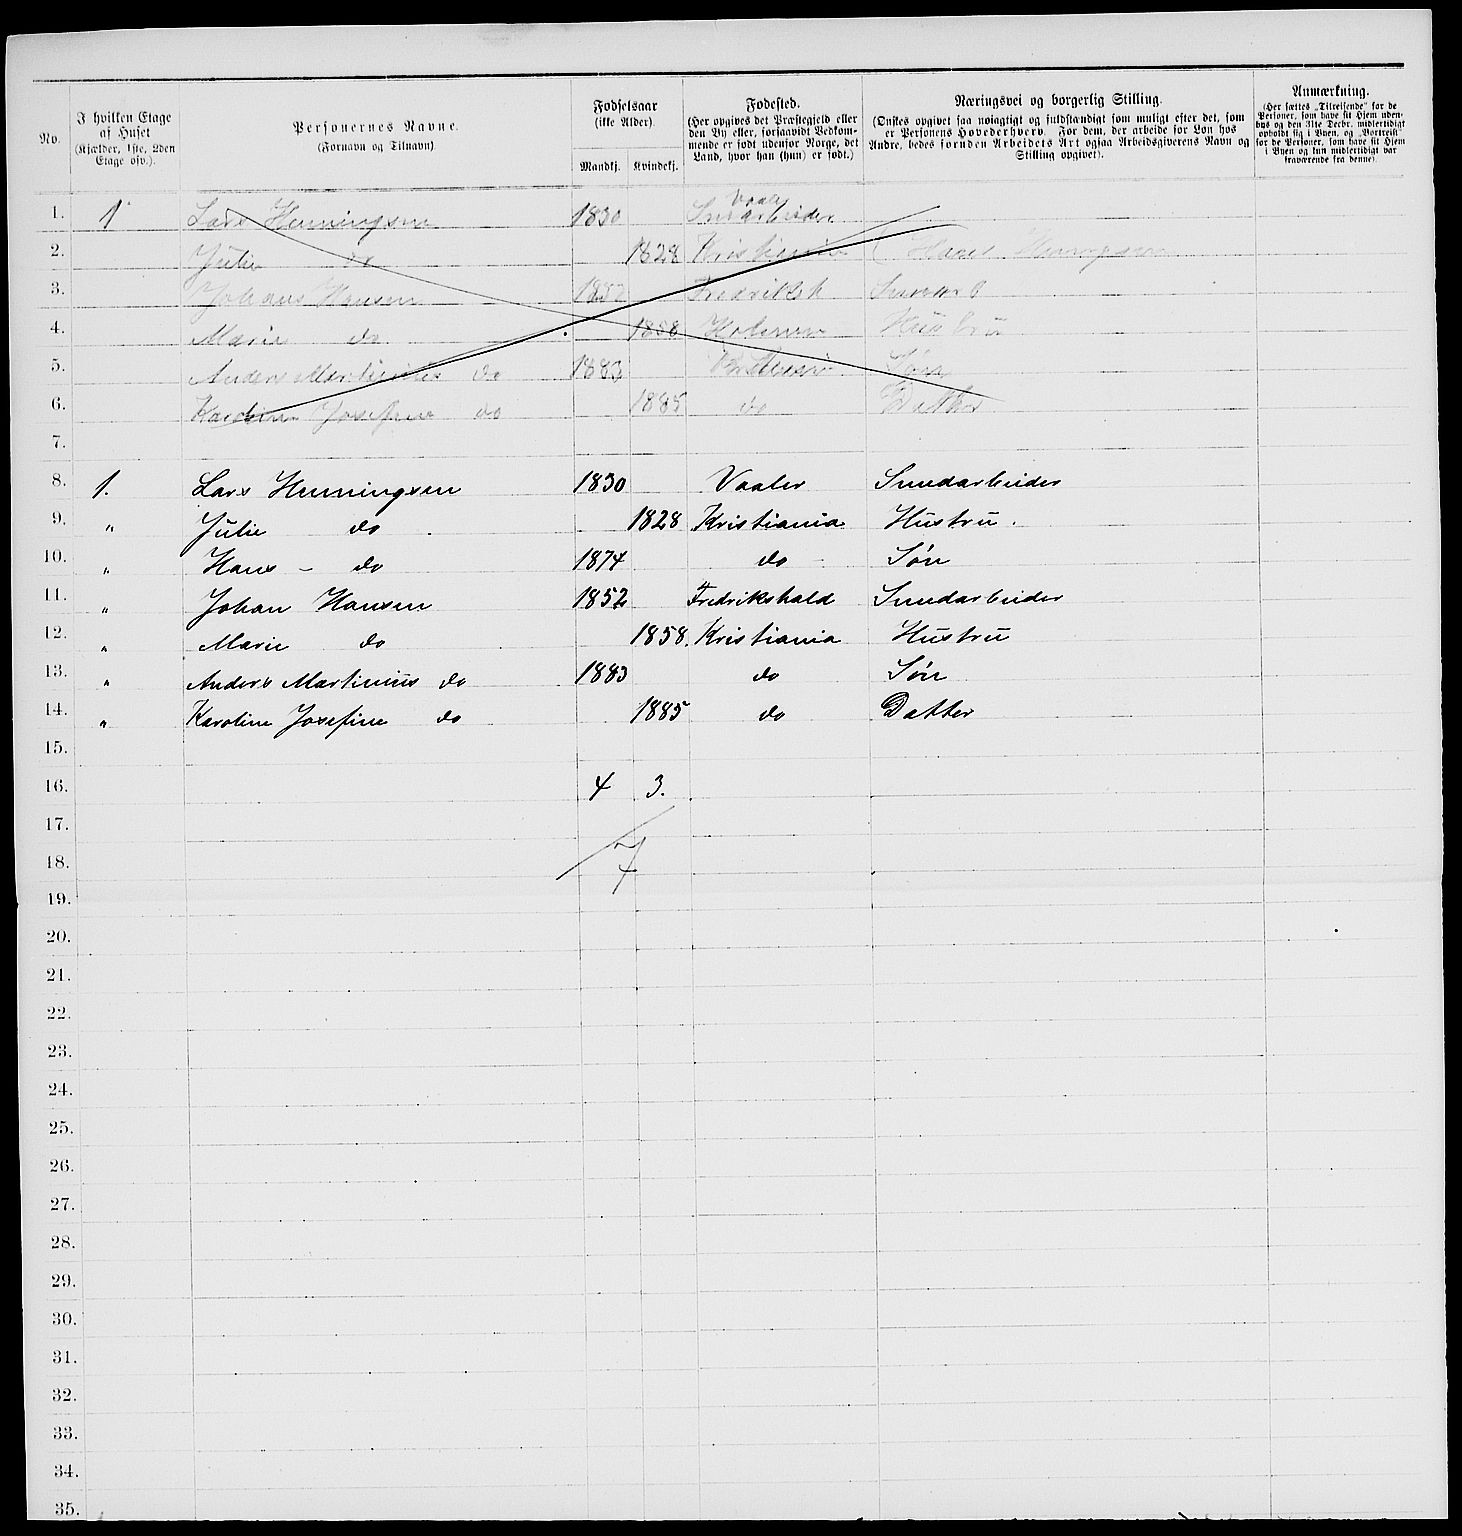 No. | I hvilken Etage af Huset (Kjælder, 1ste, 2den Etage osv.). | Personernes Navne. (Fornavn og Tilnavn). | Fødselsaar (ikke Alder). Mandkj. Kvindekj. | Fødested. (Her opgives det Præstegjeld eller den By eller, forsaavidt Vedkommende er født udenfor Norge, det Land, hvor han (hun) er født.) | Næringsvei og borgerlig Stilling. (Ønskes opgivet saa nøiagtigt og fuldstændigt som muligt efter det, som er Personens Hovederhverv. For dem, der arbeide for Løn hos Andre, bedes foruden Arbeidets Art ogsaa Arbeidsgiverens Navn og Stilling opgivet). | Anmærkning. (Her sættes „Tilreisende" for de Personer, som have sit Hjem udenbys og den 31te Decbr. midlertidigt opholdt sig i Byen, og „Bortreist" for de Personer, som have sit Hjem i Byen og kun midlertidigt var fraværende fra denne).
1. 1 Lars Henningsen 1830 Vaaler
2. Julie do 1828 Kristiania Hans Henningsen
3. Johans Hansen 1852 Fredriksh
4. Marie do 1858 Hustru
5. Anders Martinius do 1883 Kristiania Søn
6. Karoline Josefine do 1885 do Datter
7.
8. 1. Lars Henningsen 1830 Vaaler Smedarbeider
9. " Julie do 1828 Kristiania Hustru.
10. " Hans - do 1874 do Søn
11. " Johan Hansen 1852 Fredrikshald Smedarbeider
12. " Marie do 1858. Kristiania Hustru
13. " Anders Martinius do 1883 do Søn
14. " Karoline Josefine do 1885 do Datter
15.
16. 4 3.
17.
18. 7
19.
20.
21.
22.
23.
24.
25.
26.
27.
28.
29.
30.
31.
32.
33.
34.
35.